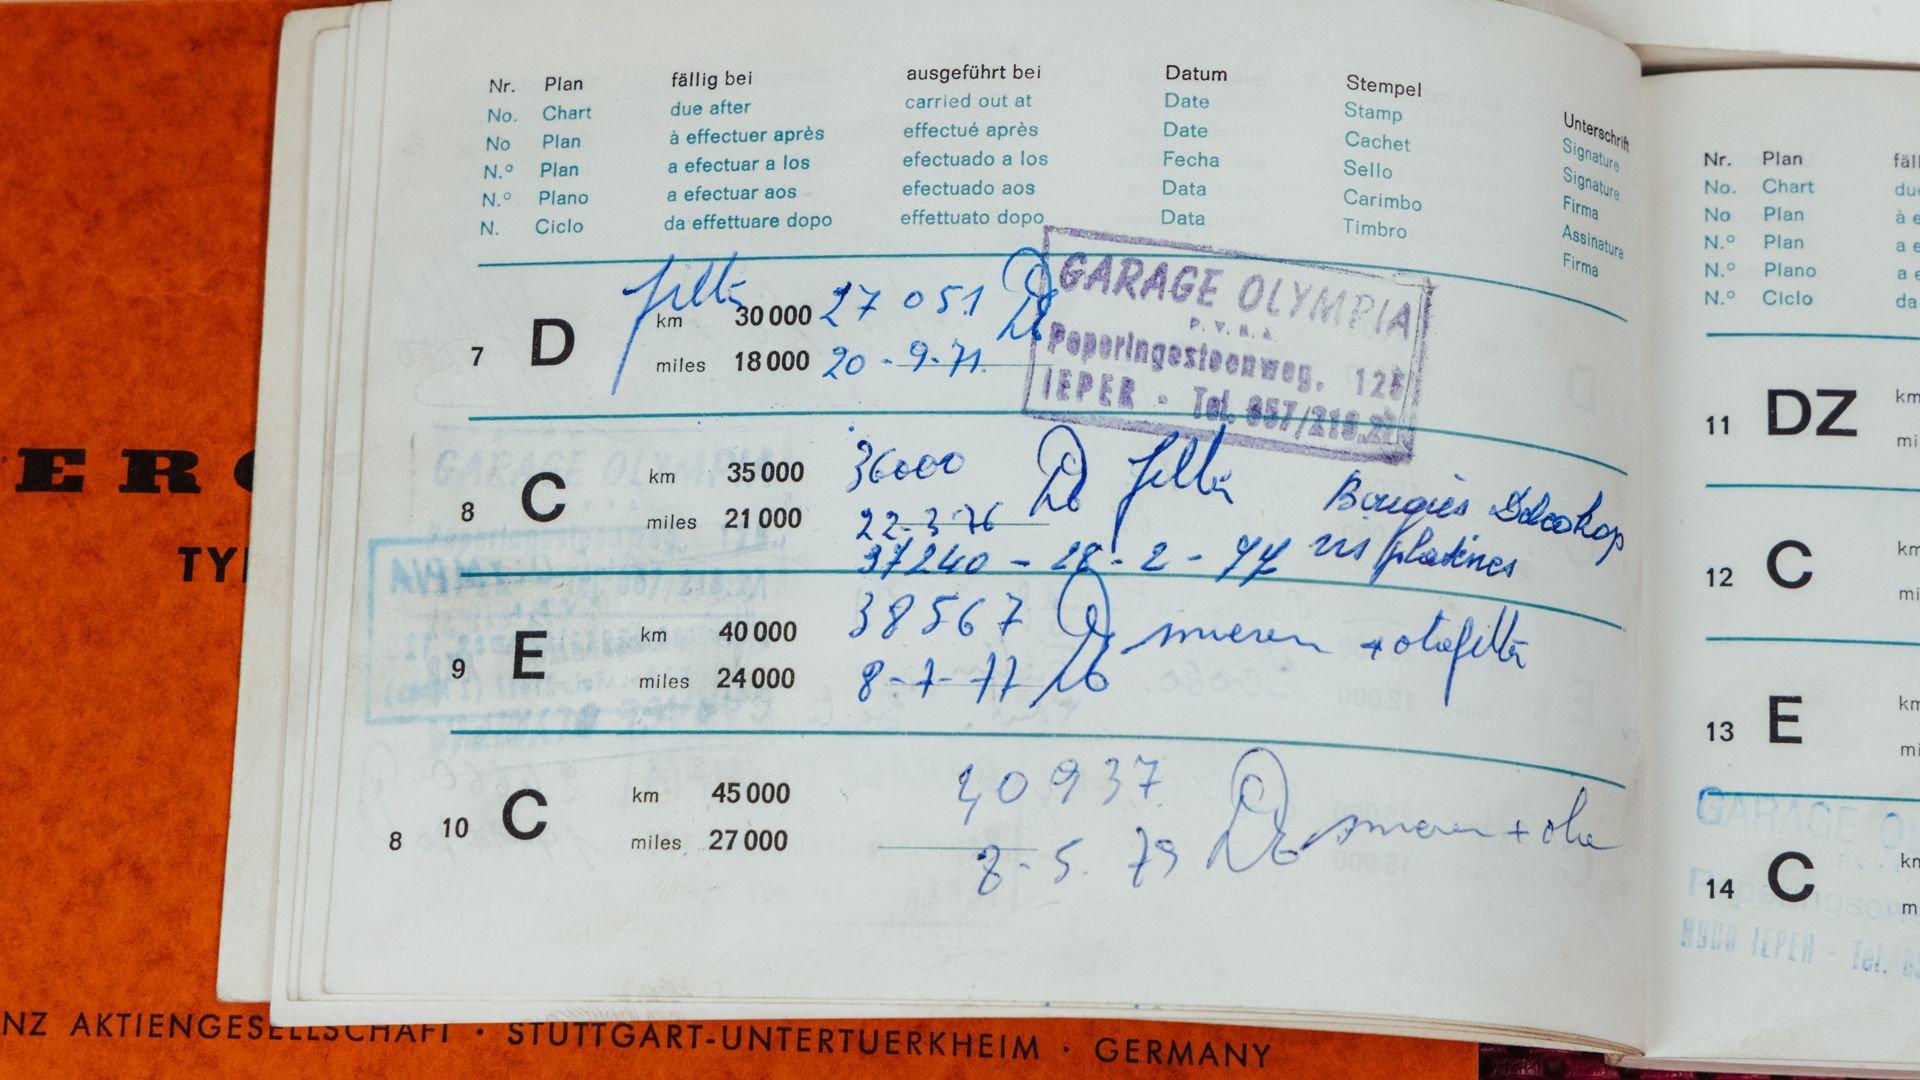 Nr. Plan fällig bei ausgeführt bei Datum Stempel Unterschrift
No. Chart due after carried out at Date Stamp Signature
No Plan à effectuer après effectué après Date Cachet Signature
N.º Plan a efectuar a los efectuado a los Fecha Sello Firma
N.º Plano a efectuar aos efectuado aos Data Carimbo Assinatura
N. Ciclo da effettuare dopo effettuato dopo Data Timbro Firma
7 D km 30 000 27 051
miles 18 000 20-9-71.
GARAGE OLYMPIA
P.V.B.A.
Poperingesteenweg, 125
IEPER - Tel. 057/218.21
8 C km 35 000 36000 Bougies
miles 21 000 22-3-76
37240 - 28-2-77 vis platines
9 E km 40 000 38567 smeren +
miles 24 000 8-7-77
10 C km 45 000 40937
miles 27 000 8-5.79 smeren + olie
8
Nr. Plan
No. Chart
No Plan
N.º Plan
N.º Plano
N.º Ciclo
11 DZ
12 C
13 E
14 C
GARAGE
8900 IEPER - Tel.
GARAGE OLYMPIA
TY
NZ AKTIENGESELLSCHAFT · STUTTGART-UNTERTUERKHEIM · GERMANY